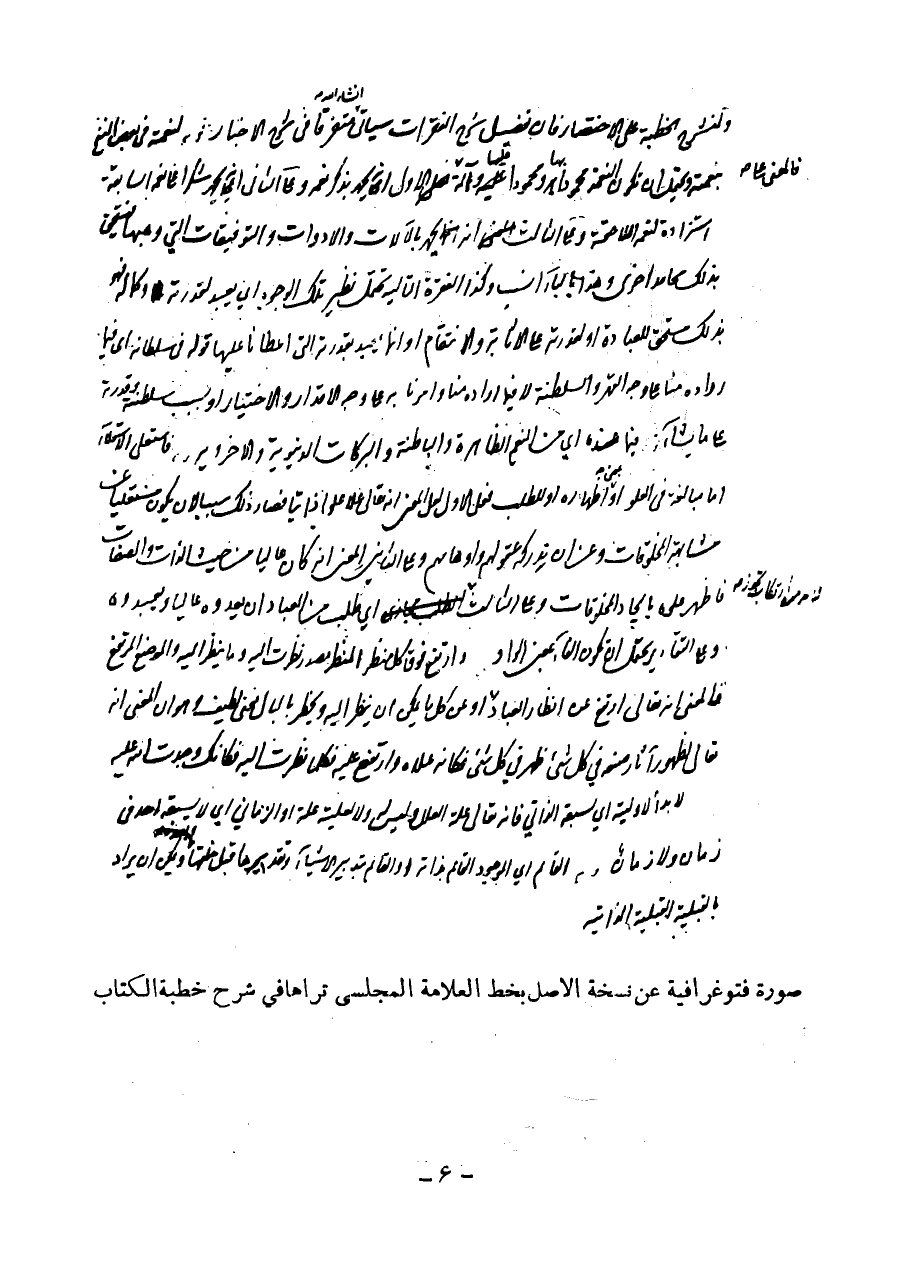 انشاء الله
ولنشرح الخطبة على الاختصار فان تفصيل شرح الفقرات سيأتي متفرقا في شرح الاخبار قوله لنعمته في بعض النسخ
بنعمته ويحتمل ان تكون النعمة محمودا بها ومحمودا عليها وآلة فعلى الاول المعنى انه يحمد بذكر نعمه وعلى الثاني انه يحمد شكرا على نعمه السابقة
فالمعنى على
استزادة لنعمه اللاحقة وعلى الثالث انه يحمد بالآلات والادوات والتوفيقات التي وهبها فيستحق
بذلك محامد اخرى وهذا بالباء انسب وكذا الفقرة التالية تحتمل نظير تلك الوجوه اي يعبد لقدرته وكماله فهو
بذلك مستحق للعبادة او لقدرته على الاثابة والانتقام او انما يعبد بقدرته التي اعطانا عليها قوله في سلطانه اي فيما
اراده منا على وجه القهر والسلطنة لا فيما اراده منا وامرنا به على وجه الاقدار والاختيار او بسبب سلطنته وقدرته
على ما يشاء فيما عنده اي من النعم الظاهرة والباطنة والبركات الدنيوية والاخروية فاستعلى الاستعلاء
اما مبالغة في العلو او بمعنى اظهاره او للطلب فعلى الاول لعل المعنى انه تعالى علا علوا ذاتيا فصار ذلك سببا لان يكون مستعليا عن
مشابهة المخلوقات وعن ان تدركه عقولهم واوهامهم وعلى الثاني المعنى انه كان عاليا من حيث الذات والصفات
فاظهر علوه بايجاد المخلوقات وعلى الثالث اي طلب من العباد ان يعدوه عاليا ويعبدوه
وعلى التقادير يحتمل ان تكون الفاء بمعنى الواو وارتفع فوق كل منظر المنظر مصدر نظرت اليه وما ينظر اليه والموضع المرتفع
فالمعنى انه تعالى ارتفع عن انظار العباد او عن كل ما يمكن ان ينظر اليه ويخطر بالبال معنى لطيف وهو ان المعنى انه
تعالى لظهور آثار صنعه في كل شئ ظهر في كل شئ فكانه علاه وارتفع عليه فكلما نظرت اليه فكانك وجدت الله عليه
لا بدأ لاوليته اي لسبقه الذاتي فانه تعالى علة العلل وليس له ولا لعليته علة او الزماني اي لا يسبقه احد في
زمان ولا زمان قوله القائم اي الموجود القائم بذاته او القائم بتدبير الاشياء وتقديرها قبل خلقها ويمكن ان يراد
بالقبلية القبلية الذاتية
صورة فتوغرافية عن نسخة الاصل بخط العلامة المجلسى تراها في شرح خطبة الكتاب
- ۶ -